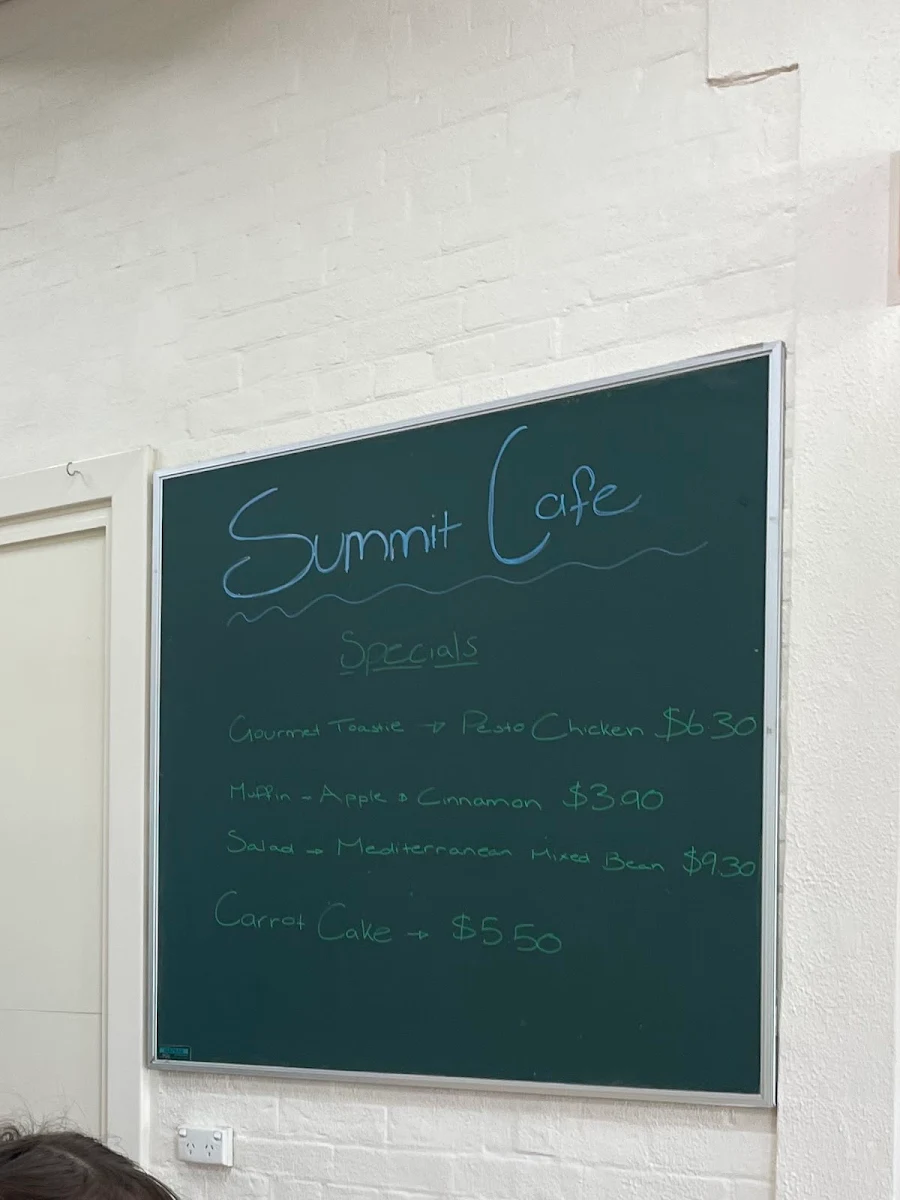 Summit Cafe
Specials
Gourmet Toastie → Pesto Chicken $6.30
Muffin → Apple & Cinnamon $3.90
Salad → Mediterranean Mixed Bean $9.30
Carrot Cake → $5.50